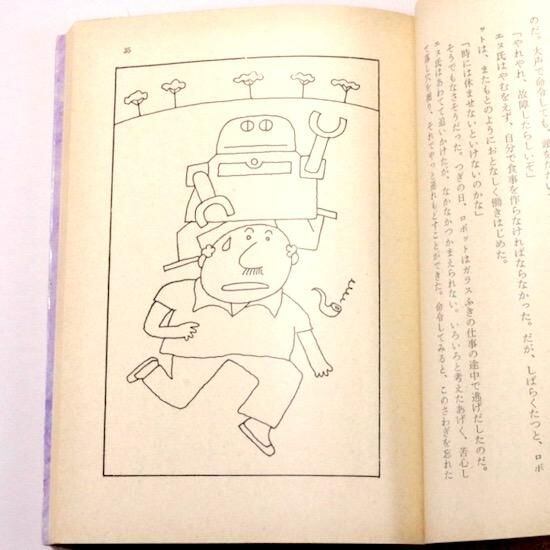 のだ。大声で命令しても、
「やれやれ、故障したらしいぞ」
エヌ氏はやむをえず、自分で食事を作らなければならなかった。だが、しばらくたつと、ロボ
ットは、またもとのようにおとなしく働きはじめた。
「時には休ませないといけないのかな」
そうでもなさそうだった。つぎの日、ロボットはガラスふきの仕事の途中で逃げだしたのだ。
エヌ氏はあわてて追いかけたが、なかなかつかまえられない。いろいろと考えたあげく、苦心し
て落し穴を掘り、それでやっと連れもどすことができた。命令してみると、このさわぎを忘れた
35